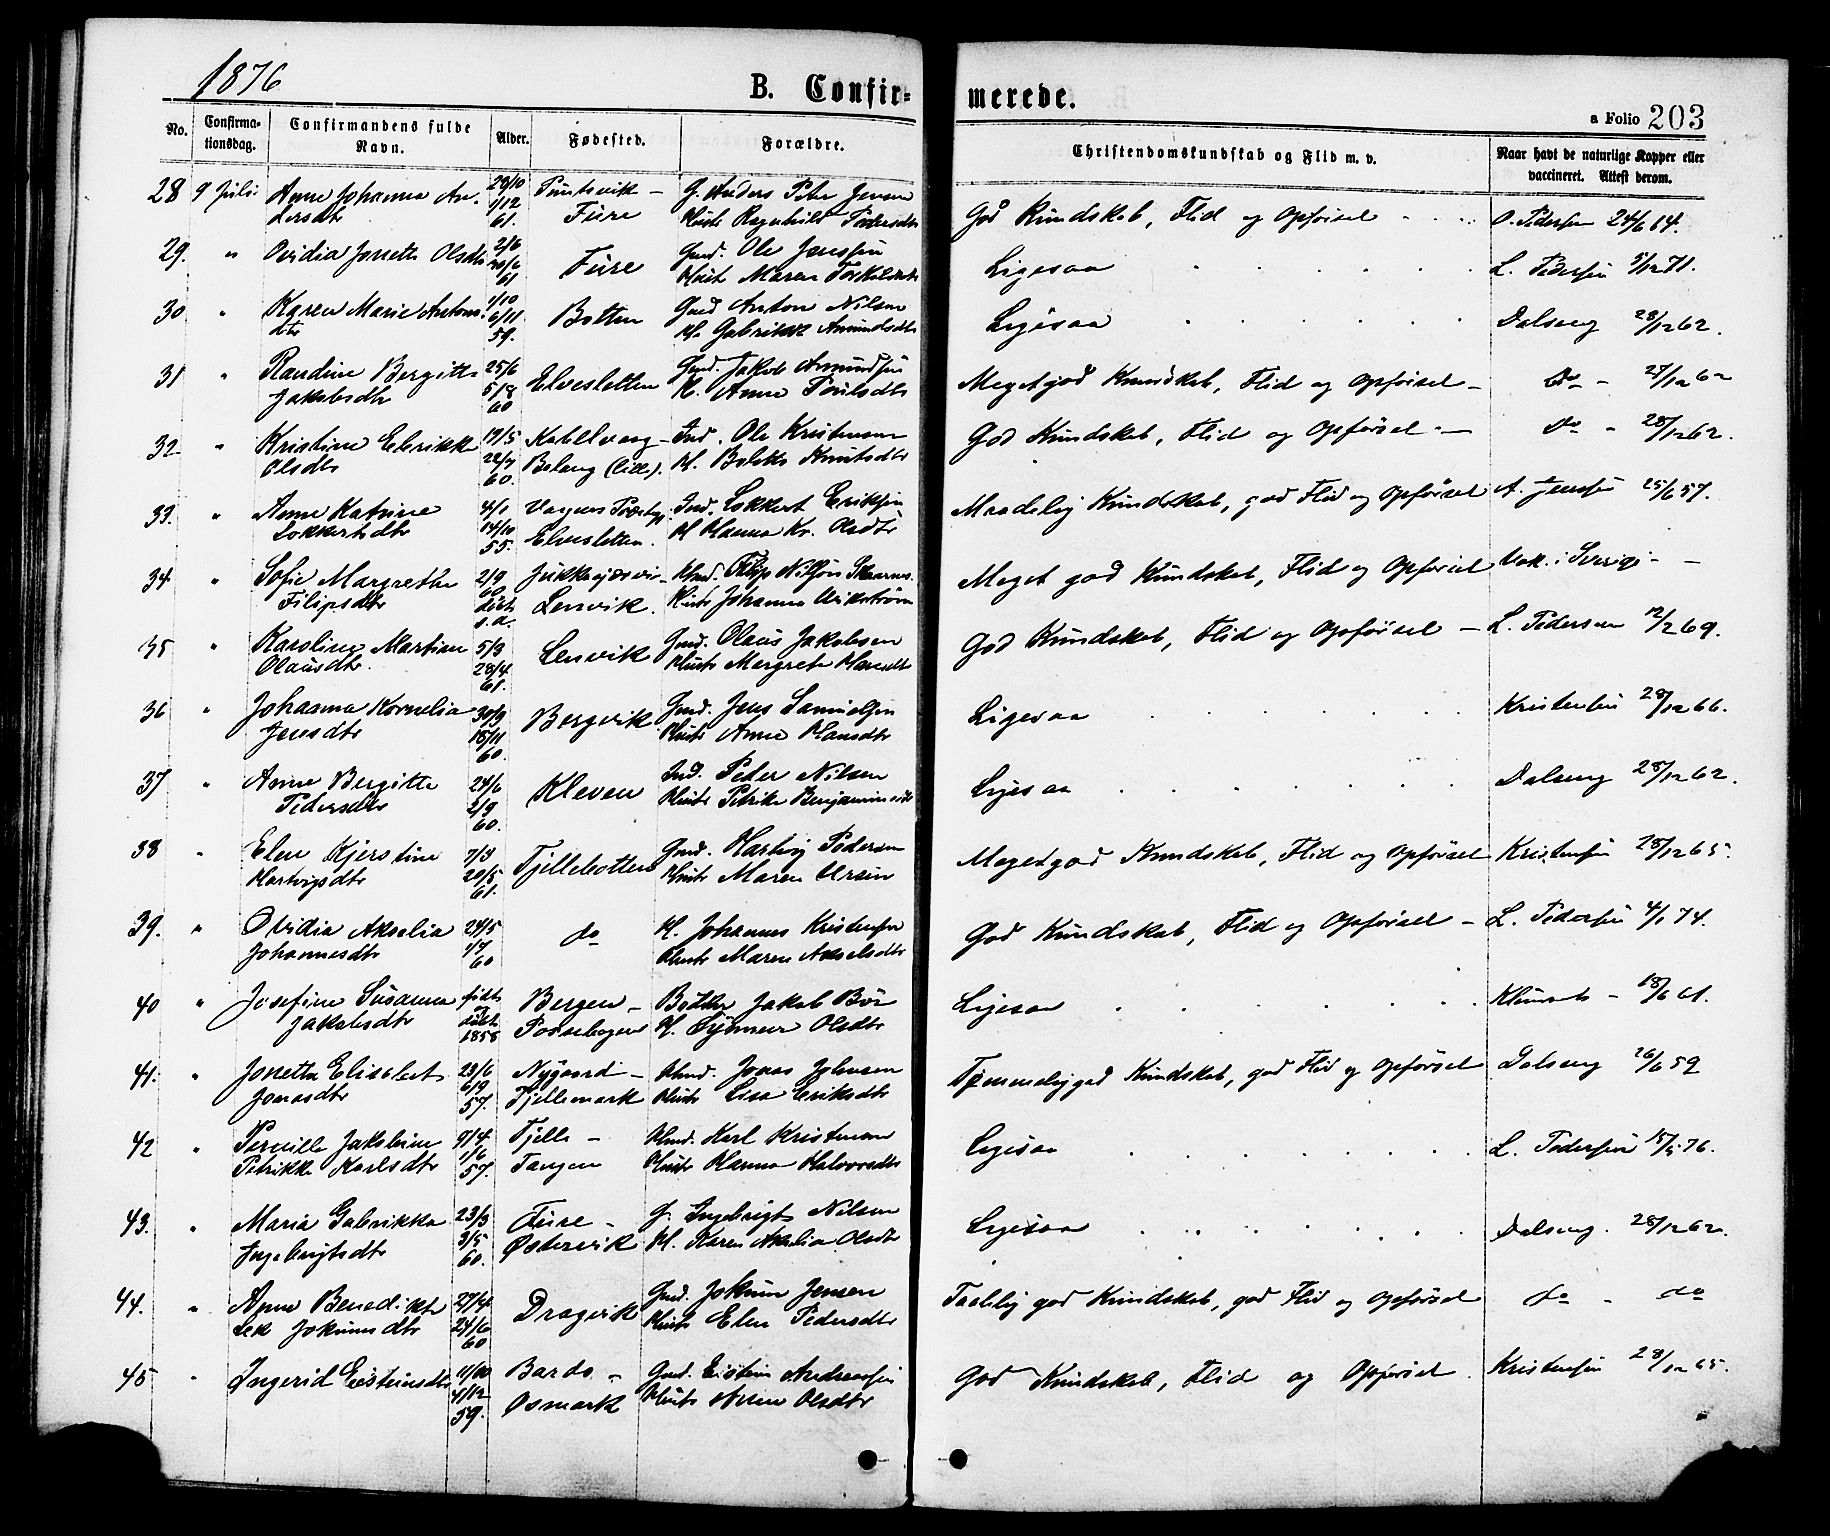 1876
B. Confir=
merede.
a Folio 203
No.
Confirma-
tionsdag.
Confirmandens fulde
Navn.
Alder.
Fødested.
Forældre.
Christendomskundskab og Flid m. v.
Naar havt de naturlige Kopper eller
vaccineret. Attest derom.
28 9 Juli Anne Johanna An- 29/10 – G. Anders Peter Jensen God Kundskab, Flid og Opførsel O. Pedersen 24/6 64.
dersdtr 1/12 61. Fure Hustr Ragnhild Pedersdtr
29. " Ovidia Jonette Olsdtr 2/6 61 Fure Gmd. Ole Jenssen Ligesaa L. Pedersen 71.
Hustr Maren
30. " Karen Marie Antons- 1/10 Botten Gmd Anton Nilsen Ligesaa Dalseng 28/12 62.
dtr 6/11 59. H. Gabrikke Amundsdtr
31 " Randine Bergitte 25/6 Elvesletten Gmd. Jakob Amundsen Meget god Kundskab, Flid og Opførsel – do – 62
Jakobsdtr 5/8 60 H. Anne Poulsdtr
32 " Kristine Elerikke 19/5 – Ind. Ole Kristensen God Kundskab, Flid og Opførsel – do – 28/12 62.
Olsdtr 22/7 60. (Lille). H. Knutsdtr
33. " Anne Katrine 4/1 Ind. Lokkert Eriksen Maadelig Kundskab, god Flid og Opførsel A. Jensen 25/6 57.
Lokkertsdtr 14/10 55. Elvesletten. H Hanna Kr. Olsdtr
34 " Sofie Margrethe 2/9 60 Jukkesjærvi – Hmd. Filip Nilsen Meget god Kundskab, Flid og Opførsel Vak. i Sverige –
Filipsdtr døbt s. a. Lenvik. Hustr Johanna Vikström
35 " Karoline Martine 5/3 Lenvik Gmd. Olaus Jakobsen God Kundskab, Flid og Opførsel – L. Pedersen 12/2 69.
Olausdtr. 28/4 61. Hustr Margrete Hansdtr
36 " Johanna Kornelia 30/9 Bergvik Gmd. Jens Samuelsen Ligesaa Kristensen 28/12 66.
Jensdtr 18/11 60. Hustr Anne Hansdtr
37 " Anne Bergitte 24/6 Kleven Ind. Peder Nilsen Ligesaa Dalseng 28/12 62.
Pedersdtr 2/9 60. Hustr Petrike Benjaminsdtr
38 " Elen Kjerstine 7/3 Tjellebotten Gmd. Hartvig Pedersen Meget god Kundskab, Flid og Opførsel Kristensen 28/12 65.
Hartvigsdtr 20/5 61. Hustr Maren Ursin
39. " Ovidia Akselia 24/5 do H. Johannes Kristensen God Kundskab, Flid og Opførsel – L. Pedersen 4/1 74.
Johannesdtr 1/7 60 Hustr Maren Akselsdtr
40 " Josefine Susanna født og Bergen – Jakob Ligesaa – 18/6 61.
Jakobsdtr døbt 1858 H. Olsdtr
41. " Jonetta Elisabet 23/6 Nygaard – Hmd. Jonas Johnsen Temmelig god Kundskab, god Flid og Opførsel Dalseng 26/6 59
Jonasdtr 6/9 57. Fjellemark Hustr Lisa Eriksdtr
42 " Pernille Jakobine 9/4 Tjelle – Hmd. Karl Kristensen Ligesaa L. Pedersen 76.
Petrikke Karlsdtr 1/6 57. Tangen Hustr Hanna Halvorsdtr
43. " Maria Gabrikka 23/3 Fure – G. Ingebrigt Nilsen Ligesaa Dalseng. 28/12 62.
Ingebrigtsdtr 3/5 60. Østervik H. Karen Akselia Olsdtr
44. " Anne Benedikte 27/4 Dragvik Gmd. Jokum Jensen Taalelig god Kundskab, god Flid og Opførsel do – do
Lek Jokumsdtr 24/6 60 Hustr Elen Pedersdtr
45 " Ingerid Eisteinsdtr 11/10 Bardo – Gmd. Eistein Andreassen God Kundskab, Flid og Opførsel. Kristensen 28/12 65.
11/12 59. Osmark Hustr Olsdtr